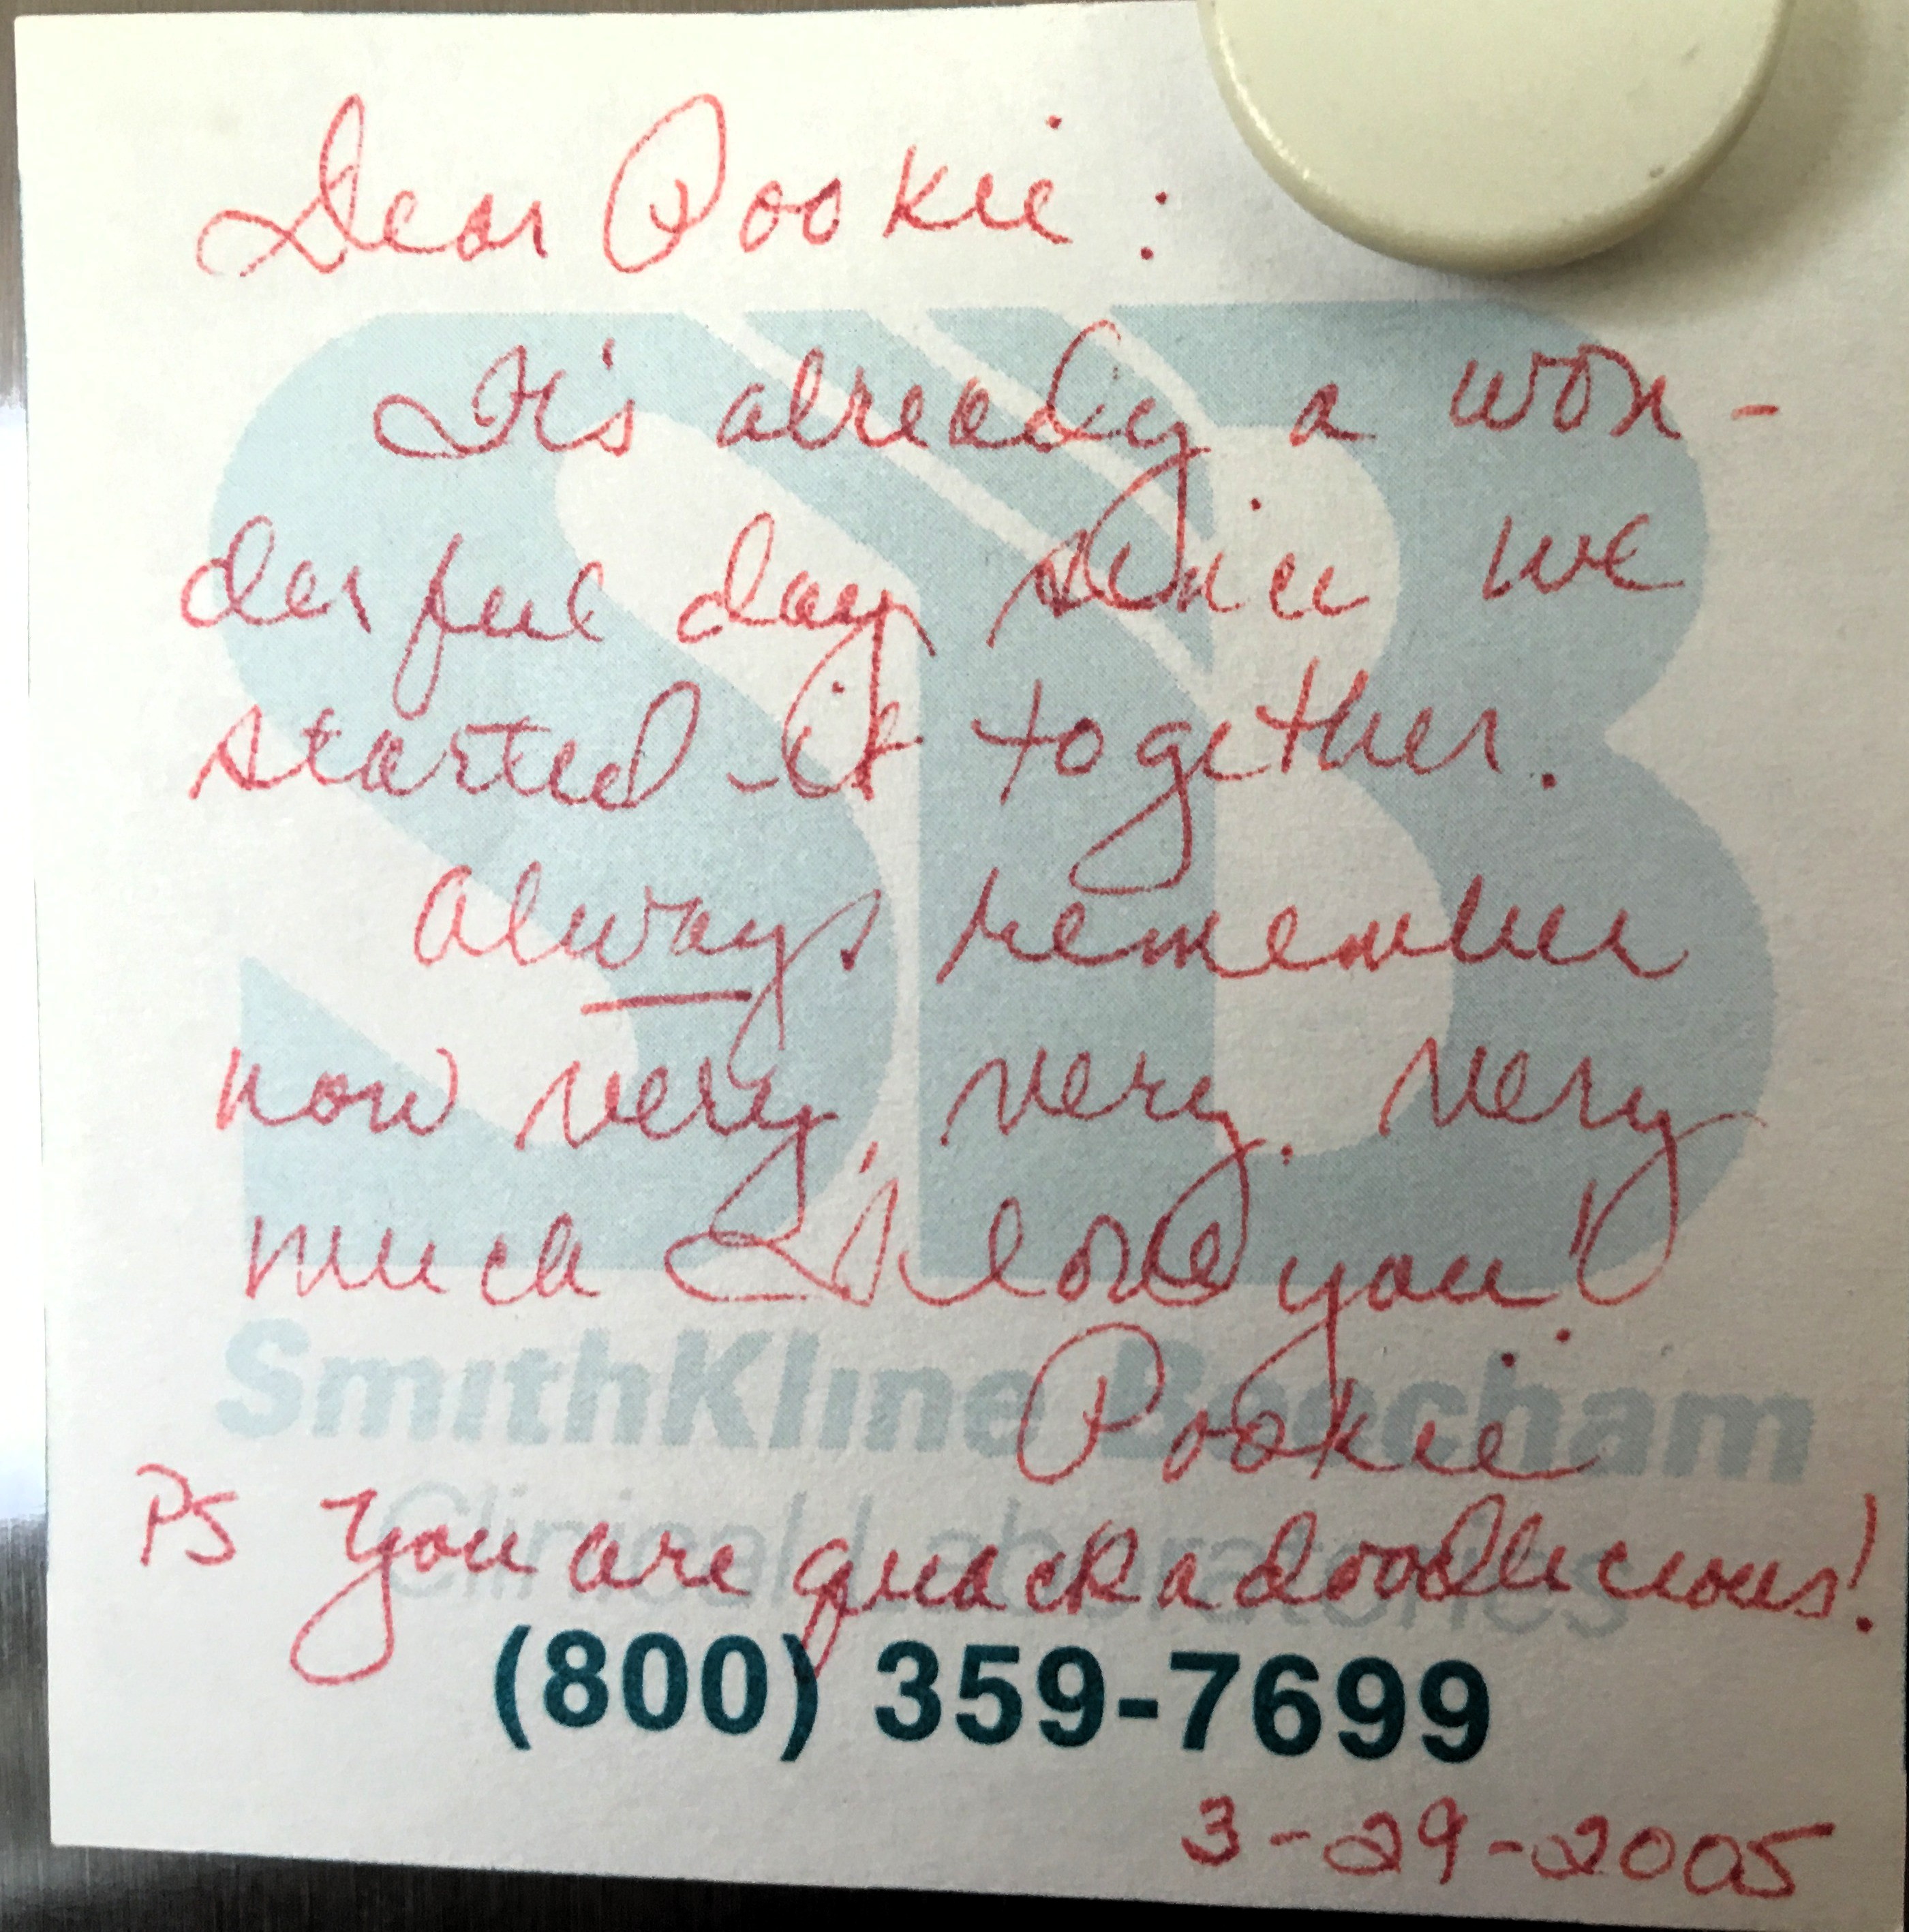 Dear Pookie:
It's already a won-
derful day since we
started it together.
Always remember
how very, very, very
much I love you!
Pookie
PS You are quackadoodlicious!
SB
SmithKline Beecham
Clinical Laboratories
(800) 359-7699
3-29-2005